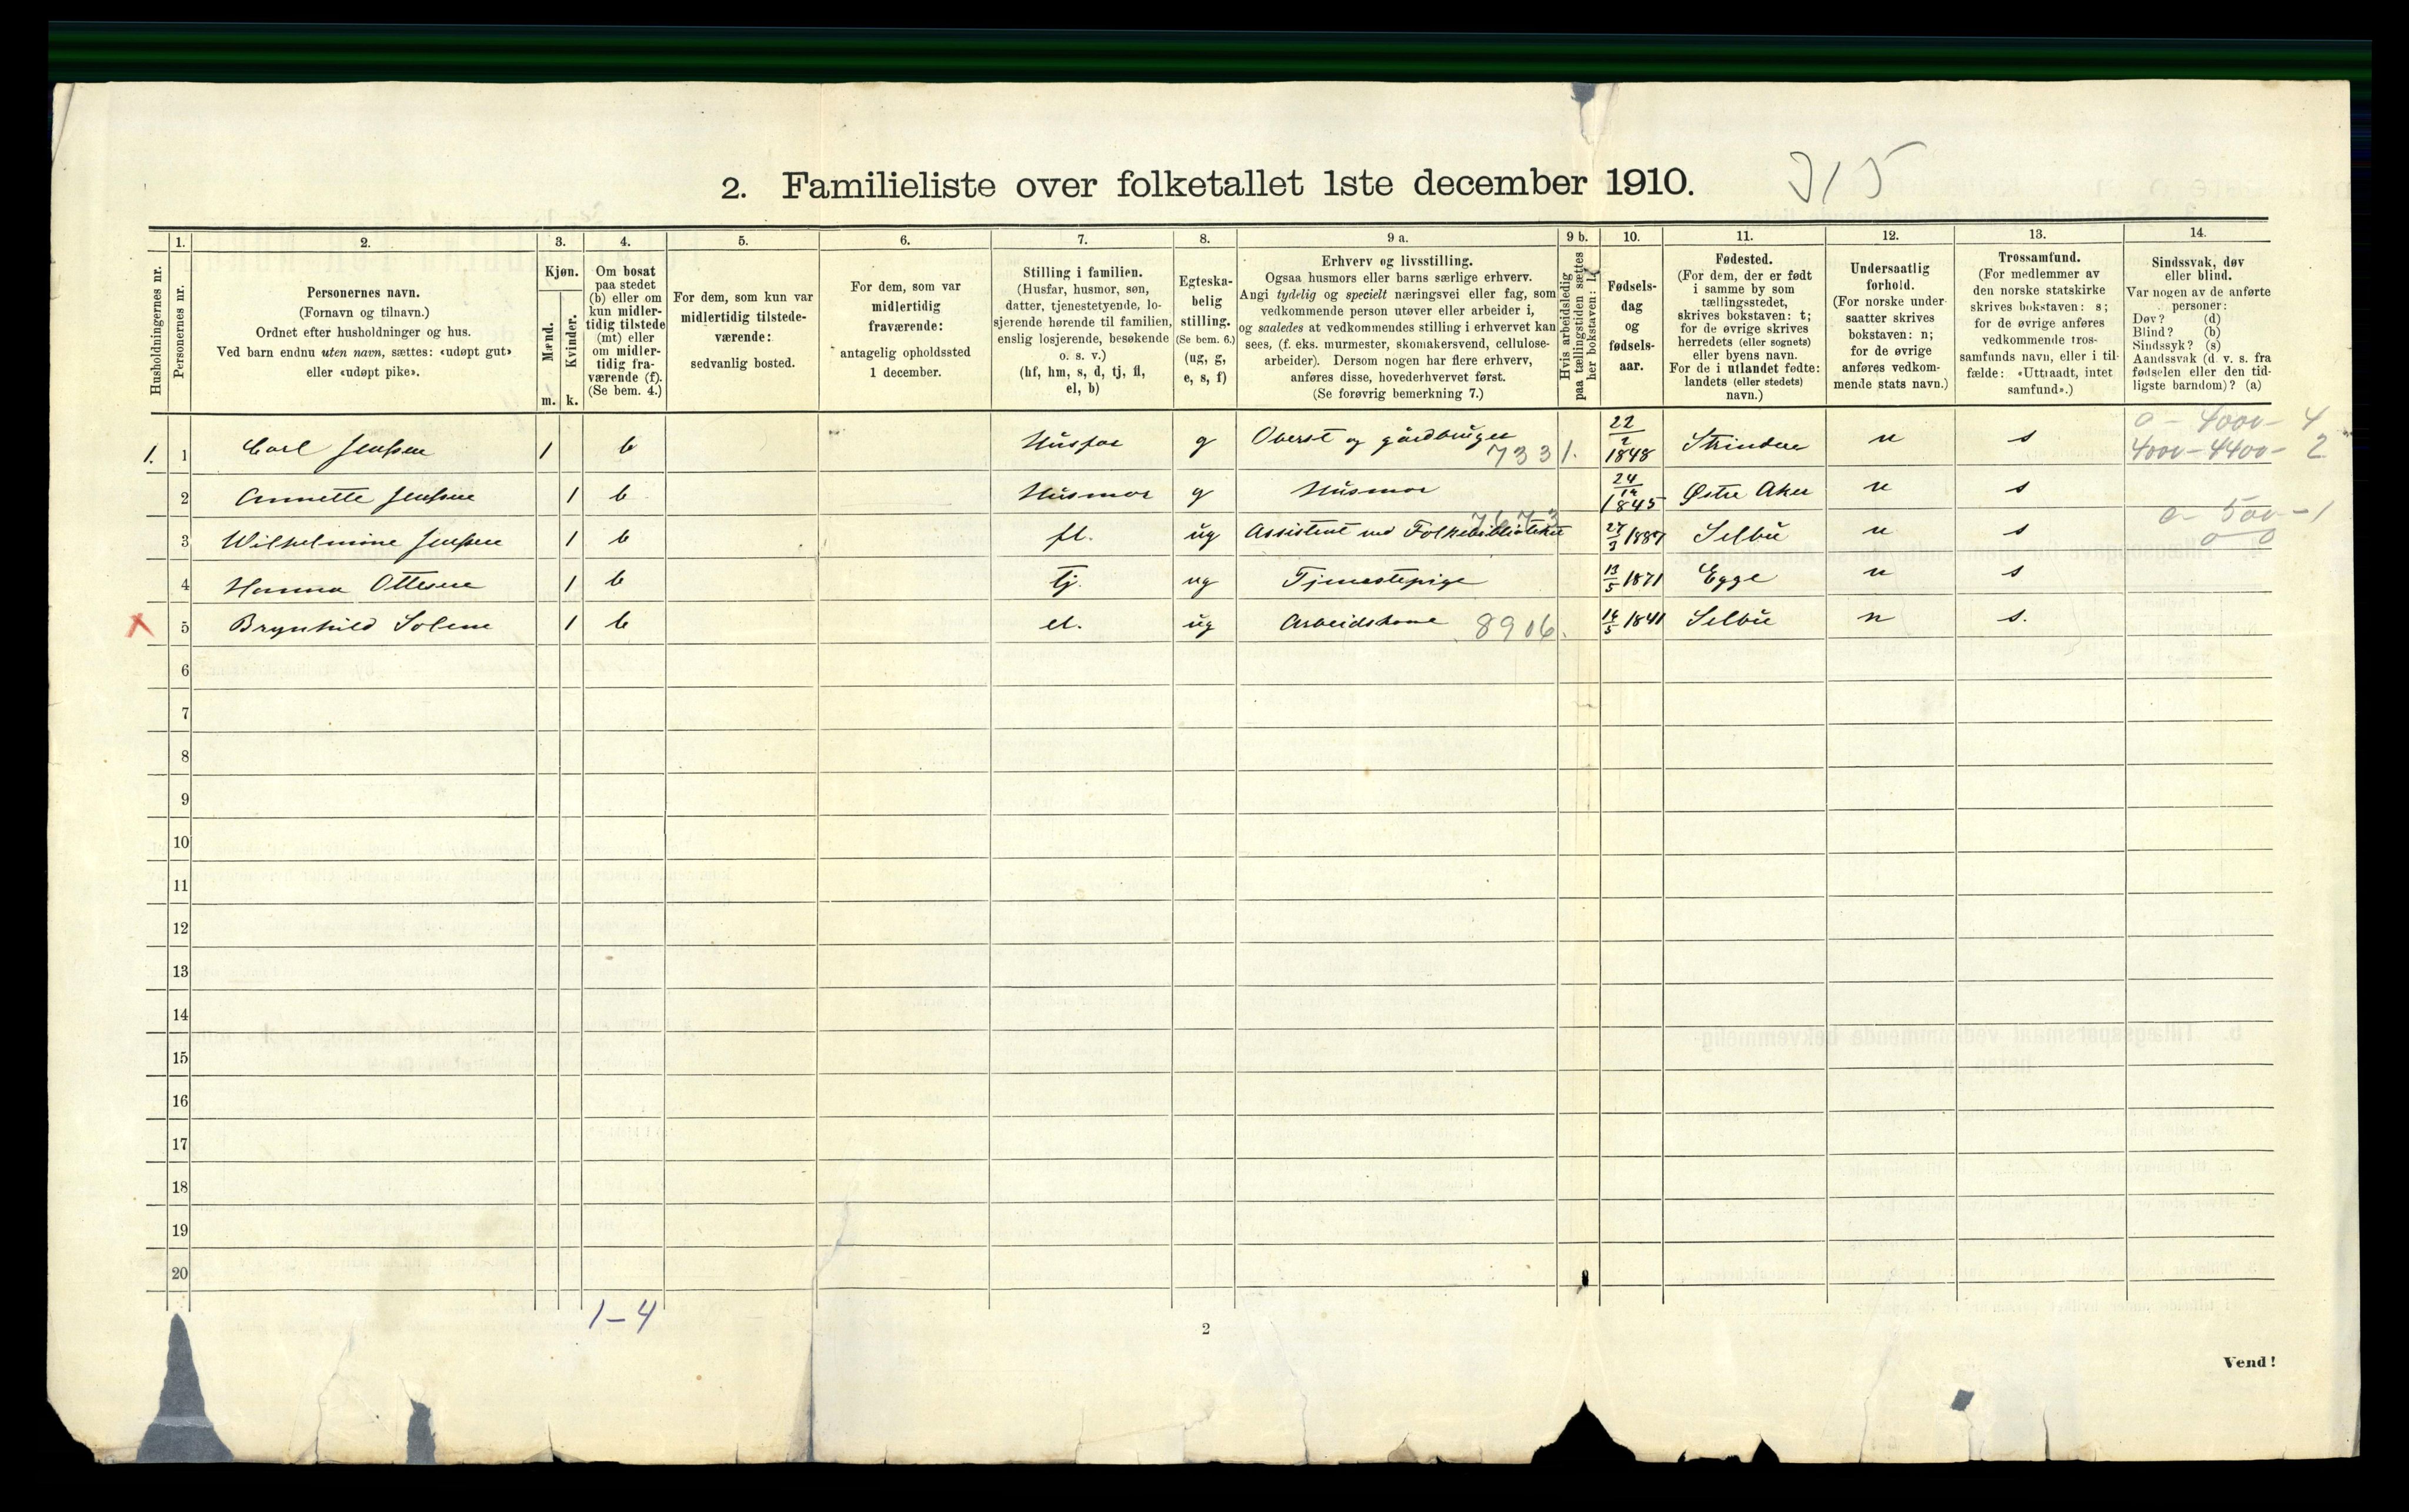 2. Familieliste over folketallet 1ste december 1910.
315
Husholdningernes nr.
1.
Personernes nr.
2.
Personernes navn.
(Fornavn og tilnavn.)
Ordnet efter husholdninger og hus.
Ved barn endnu uten navn, sættes: «udøpt gut»
eller «udøpt pike».
3.
Kjøn.
Mænd.
m.
Kvinder.
k.
4.
Om bosat
paa stedet
(b) eller om
kun midler-
tidig tilstede
(mt) eller
om midler-
tidig fra-
værende (f).
(Se bem. 4.)
5.
For dem, som kun var
midlertidig tilstede-
værende:
sedvanlig bosted.
6.
For dem, som var
midlertidig
fraværende:
antagelig opholdssted
1 december.
7.
Stilling i familien.
(Husfar, husmor, søn,
datter, tjenestetyende, lo-
sjerende hørende til familien,
enslig losjerende, besøkende
o. s. v.)
(hf, hm, s, d, tj, fl,
el, b)
8.
Egteska-
belig
stilling.
(Se bem. 6.)
(ug, g,
e, s, f)
9 a.
Erhverv og livsstilling.
Ogsaa husmors eller barns særlige erhverv.
Angi tydelig og specielt næringsvei eller fag, som
vedkommende person utøver eller arbeider i,
og saaledes at vedkommendes stilling i erhvervet kan
sees, (f. eks. murmester, skomakersvend, cellulose-
arbeider). Dersom nogen har flere erhverv,
anføres disse, hovederhvervet først.
(Se forøvrig bemerkning 7.)
9 b.
Hvis arbeidsledig
paa tællingstiden sættes
her bokstaven: l.
10.
Fødsels-
dag
og
fødsels-
aar.
11.
Fødested.
(For dem, der er født
i samme by som
tællingsstedet,
skrives bokstaven: t;
for de øvrige skrives
herredets (eller sognets)
eller byens navn.
For de i utlandet fødte:
landets (eller stedets)
navn.)
12.
Undersaatlig
forhold.
(For norske under-
saatter skrives
bokstaven: n;
for de øvrige
anføres vedkom-
mende stats navn.)
13.
Trossamfund.
(For medlemmer av
den norske statskirke
skrives bokstaven: s;
for de øvrige anføres
vedkommende tros-
samfunds navn, eller i til-
fælde: «Uttraadt, intet
samfund».)
14.
Sindssvak, døv
eller blind.
Var nogen av de anførte
personer:
Døv? (d)
Blind? (b)
Sindssyk? (s)
Aandssvak (d. v. s. fra
fødselen eller den tid-
ligste barndom)? (a)
1. 1 Carl Jenssen 1 b Husfar g Oberst og gårdbruger 7331. 22/2 1848 Strinden n s 0 - 4000 - 4
4000 - 4400 - 2
2 Annette Jenssen 1 b Husmor g Husmor 1845 Østre Aker n s
3 Wilhelmine Jenssen 1 b fl. ug Assistent ved Folkebiblioteket 7673 27/3 1887 Selbu n s 0 - 500 - 1
0 0
4 Hanna Ottesen 1 b tj. ug Tjenestepige 13/5 1871 Egge n s
X 5 Brynhild Solem 1 b el. ug Arbeidskone 8906. 1841 Selbu n s.
6
7
8
9
10
11
12
13
14
15
16
17
18
19
20
1-4
2
Vend!